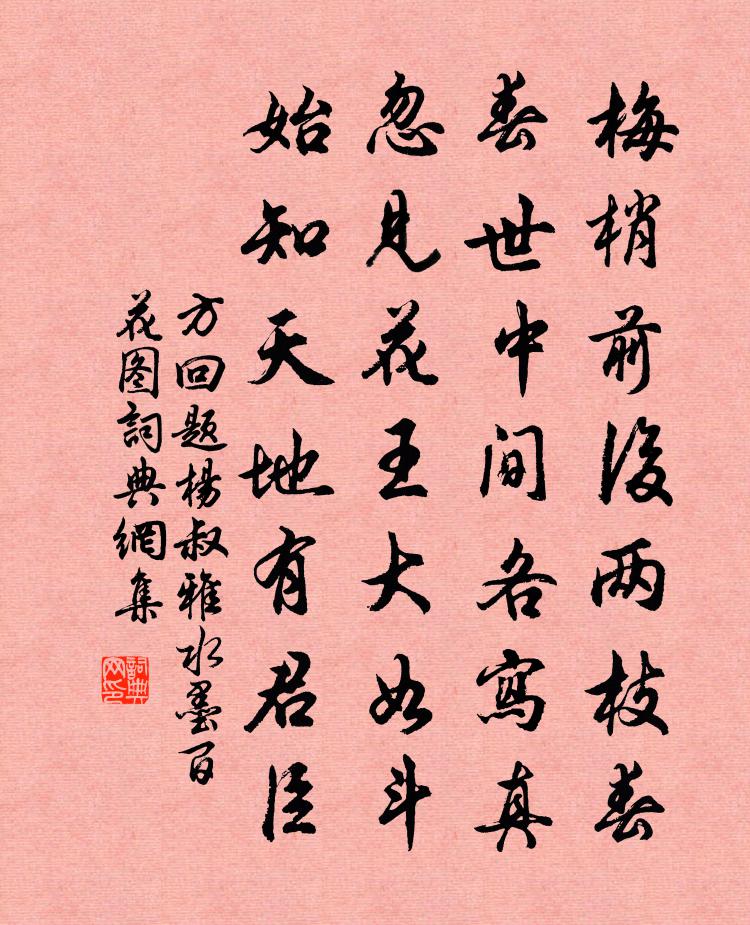 梅梢前後两枝春
春世中间各寫真
忽見花王大如斗
始知天地有君臣
方回题楊叔雅水墨百
花图詞典網集
詞典网印